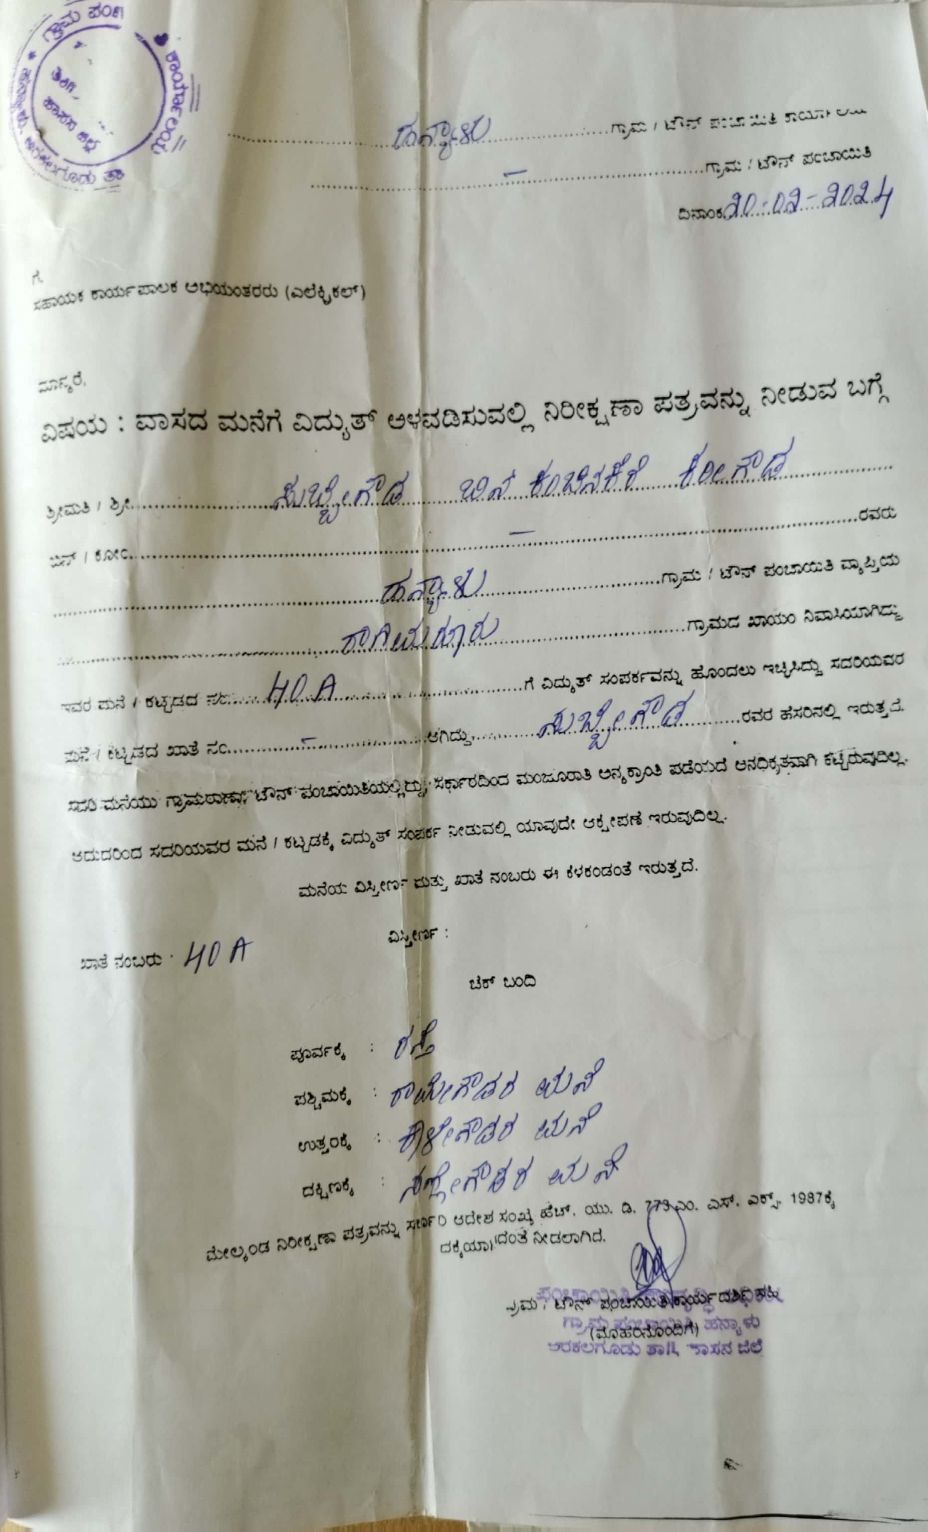 ಗ್ರಾಮ ಪಂಚಾ
ಕಾರ್ಯಾಲಯ
ಹನ್ಯಾಳು ಗ್ರಾಮ / ಟೌನ್ ಪಂಚಾಯಿತಿ ಕಾರ್ಯಾಲಯ
– ಗ್ರಾಮ / ಟೌನ್ ಪಂಚಾಯಿತಿ
ದಿನಾಂಕ 20-02-2024
ಗೆ,
ಸಹಾಯಕ ಕಾರ್ಯಪಾಲಕ ಅಭಿಯಂತರರು (ಎಲೆಕ್ಟ್ರಿಕಲ್)
ಮಾನ್ಯರೆ,
ವಿಷಯ : ವಾಸದ ಮನೆಗೆ ವಿದ್ಯುತ್ ಅಳವಡಿಸುವಲ್ಲಿ ನಿರೀಕ್ಷಣಾ ಪತ್ರವನ್ನು ನೀಡುವ ಬಗ್ಗೆ
ಶ್ರೀಮತಿ / ಶ್ರೀ. ಸುಬ್ಬೇಗೌಡ ಬಿನ್ ಕಂಚಿನಕೆರೆ ಕರೀಗೌಡ
ಬಿನ್ / ಕೋಂ – ರವರು
ಹನ್ಯಾಳು ಗ್ರಾಮ / ಟೌನ್ ಪಂಚಾಯಿತಿ ವ್ಯಾಪ್ತಿಯ
ರಾಗಿಮರೂರು ಗ್ರಾಮದ ಖಾಯಂ ನಿವಾಸಿಯಾಗಿದ್ದು
ಇವರ ಮನೆ / ಕಟ್ಟಡದ ನಂ. 40 A ಗೆ ವಿದ್ಯುತ್ ಸಂಪರ್ಕವನ್ನು ಹೊಂದಲು ಇಚ್ಛಿಸಿದ್ದು ಸದರಿಯವರ
ಮನೆ / ಕಟ್ಟಡದ ಖಾತೆ ನಂ. – ಆಗಿದ್ದು, ಸುಬ್ಬೇಗೌಡ ರವರ ಹೆಸರಿನಲ್ಲಿ ಇರುತ್ತದೆ.
ಸದರಿ ಮನೆಯು ಗ್ರಾಮಠಾಣಾ/ ಟೌನ್ ಪಂಚಾಯಿತಿಯಲ್ಲಿದ್ದು, ಸರ್ಕಾರದಿಂದ ಮಂಜೂರಾತಿ ಅನ್ಯಕ್ರಾಂತಿ ಪಡೆಯದೆ ಅನಧಿಕೃತವಾಗಿ ಕಟ್ಟಿರುವುದಿಲ್ಲ.
ಆದುದರಿಂದ ಸದರಿಯವರ ಮನೆ / ಕಟ್ಟಡಕ್ಕೆ ವಿದ್ಯುತ್ ಸಂಪರ್ಕ ನೀಡುವಲ್ಲಿ ಯಾವುದೇ ಆಕ್ಷೇಪಣೆ ಇರುವುದಿಲ್ಲ.
ಮನೆಯ ವಿಸ್ತೀರ್ಣ ಮತ್ತು ಖಾತೆ ನಂಬರು ಈ ಕೆಳಕಂಡಂತೆ ಇರುತ್ತದೆ.
ಖಾತೆ ನಂಬರು : 40 A ವಿಸ್ತೀರ್ಣ :
ಚೆಕ್ ಬಂದಿ
ಪೂರ್ವಕ್ಕೆ : ರಸ್ತೆ
ಪಶ್ಚಿಮಕ್ಕೆ : ರಾಮೇಗೌಡರ ಮನೆ
ಉತ್ತರಕ್ಕೆ : ಕಾಳೇಗೌಡರ ಮನೆ
ದಕ್ಷಿಣಕ್ಕೆ : ನಲ್ಲೇಗೌಡರ ಮನೆ
ಮೇಲ್ಕಂಡ ನಿರೀಕ್ಷಣಾ ಪತ್ರವನ್ನು ಸರ್ಕಾರಿ ಆದೇಶ ಸಂಖ್ಯೆ ಹೆಚ್. ಯು. ಡಿ. 773 ಎಂ. ಎಸ್. ಎಕ್ಸ್. 1987ಕ್ಕೆ
ನೀಡಲಾಗಿದೆ.
ಗ್ರಾಮ / ಟೌನ್ ಪಂಚಾಯಿತಿ ಕಾರ್ಯದರ್ಶಿ ಸಹಿ
(ಮೊಹರಿನೊಂದಿಗೆ)
ಗ್ರಾಮ ಪಂಚಾಯಿತಿ ಹನ್ಯಾಳು
ಅರಕಲಗೂಡು ತಾ|| ಹಾಸನ ಜಿಲ್ಲೆ